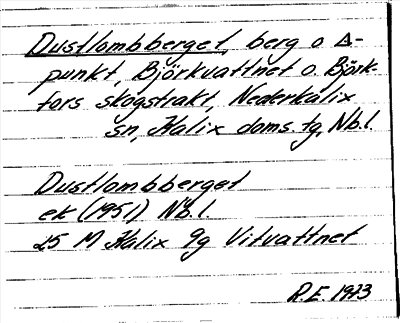 Dustlombberget, berg o. Δ-
punkt, Björkvattnet o. Björk-
fors skogstrakt, Nederkalix
sn, Kalix doms. tg, Nb.l.
Dustlombberget
ek (1951) Nb.l.
25 M Kalix 9g Vitvattnet
R.E. 1973